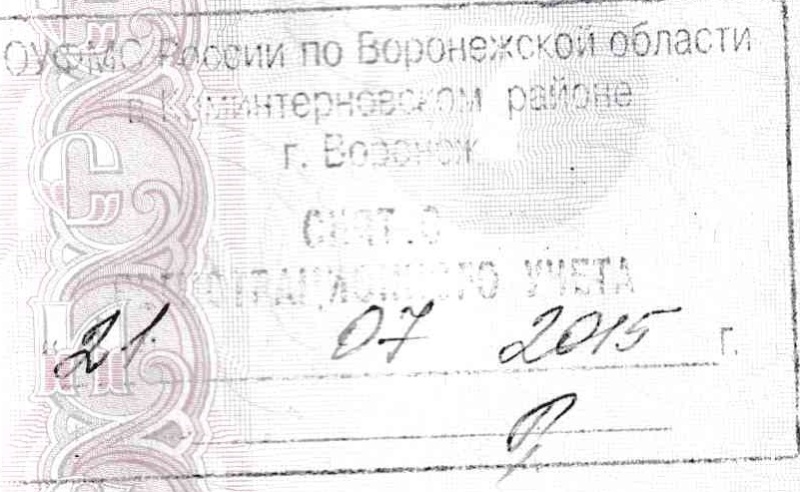 ОУФМС России по Воронежской области
в Коминтерновском районе
г. Воронеж
СНЯТ С
РЕГИСТРАЦИОННОГО УЧЕТА
"21" 07 2015 г.